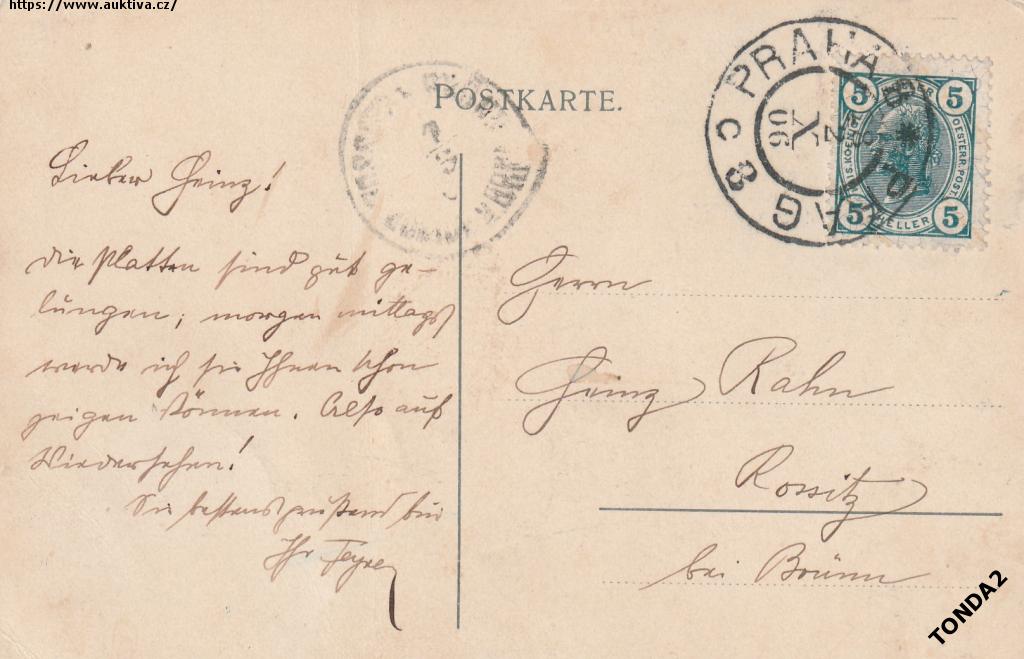 https://www.auktiva.cz/
POSTKARTE.
PRAHA
PRAG
8 X 06
5 HELLER 5
5 HELLER 5
OESTERR. POST.
Lieber Heinz!
die Platten sind gut ge-
lungen; morgen mittags
werde ich sie Ihnen schon
zeigen können. Also auf
Wiedersehen!
Sie bestens grüßend bin
Ihr
Herrn
Heinz Rahn
Rossitz
bei Brünn
TONDA2